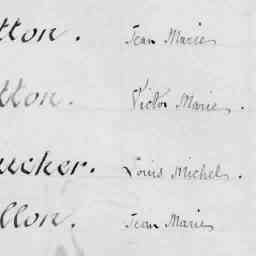 tton. Jean Marie
tton. Victor Marie.
ucker. Louis Michel.
llon. Jean Marie